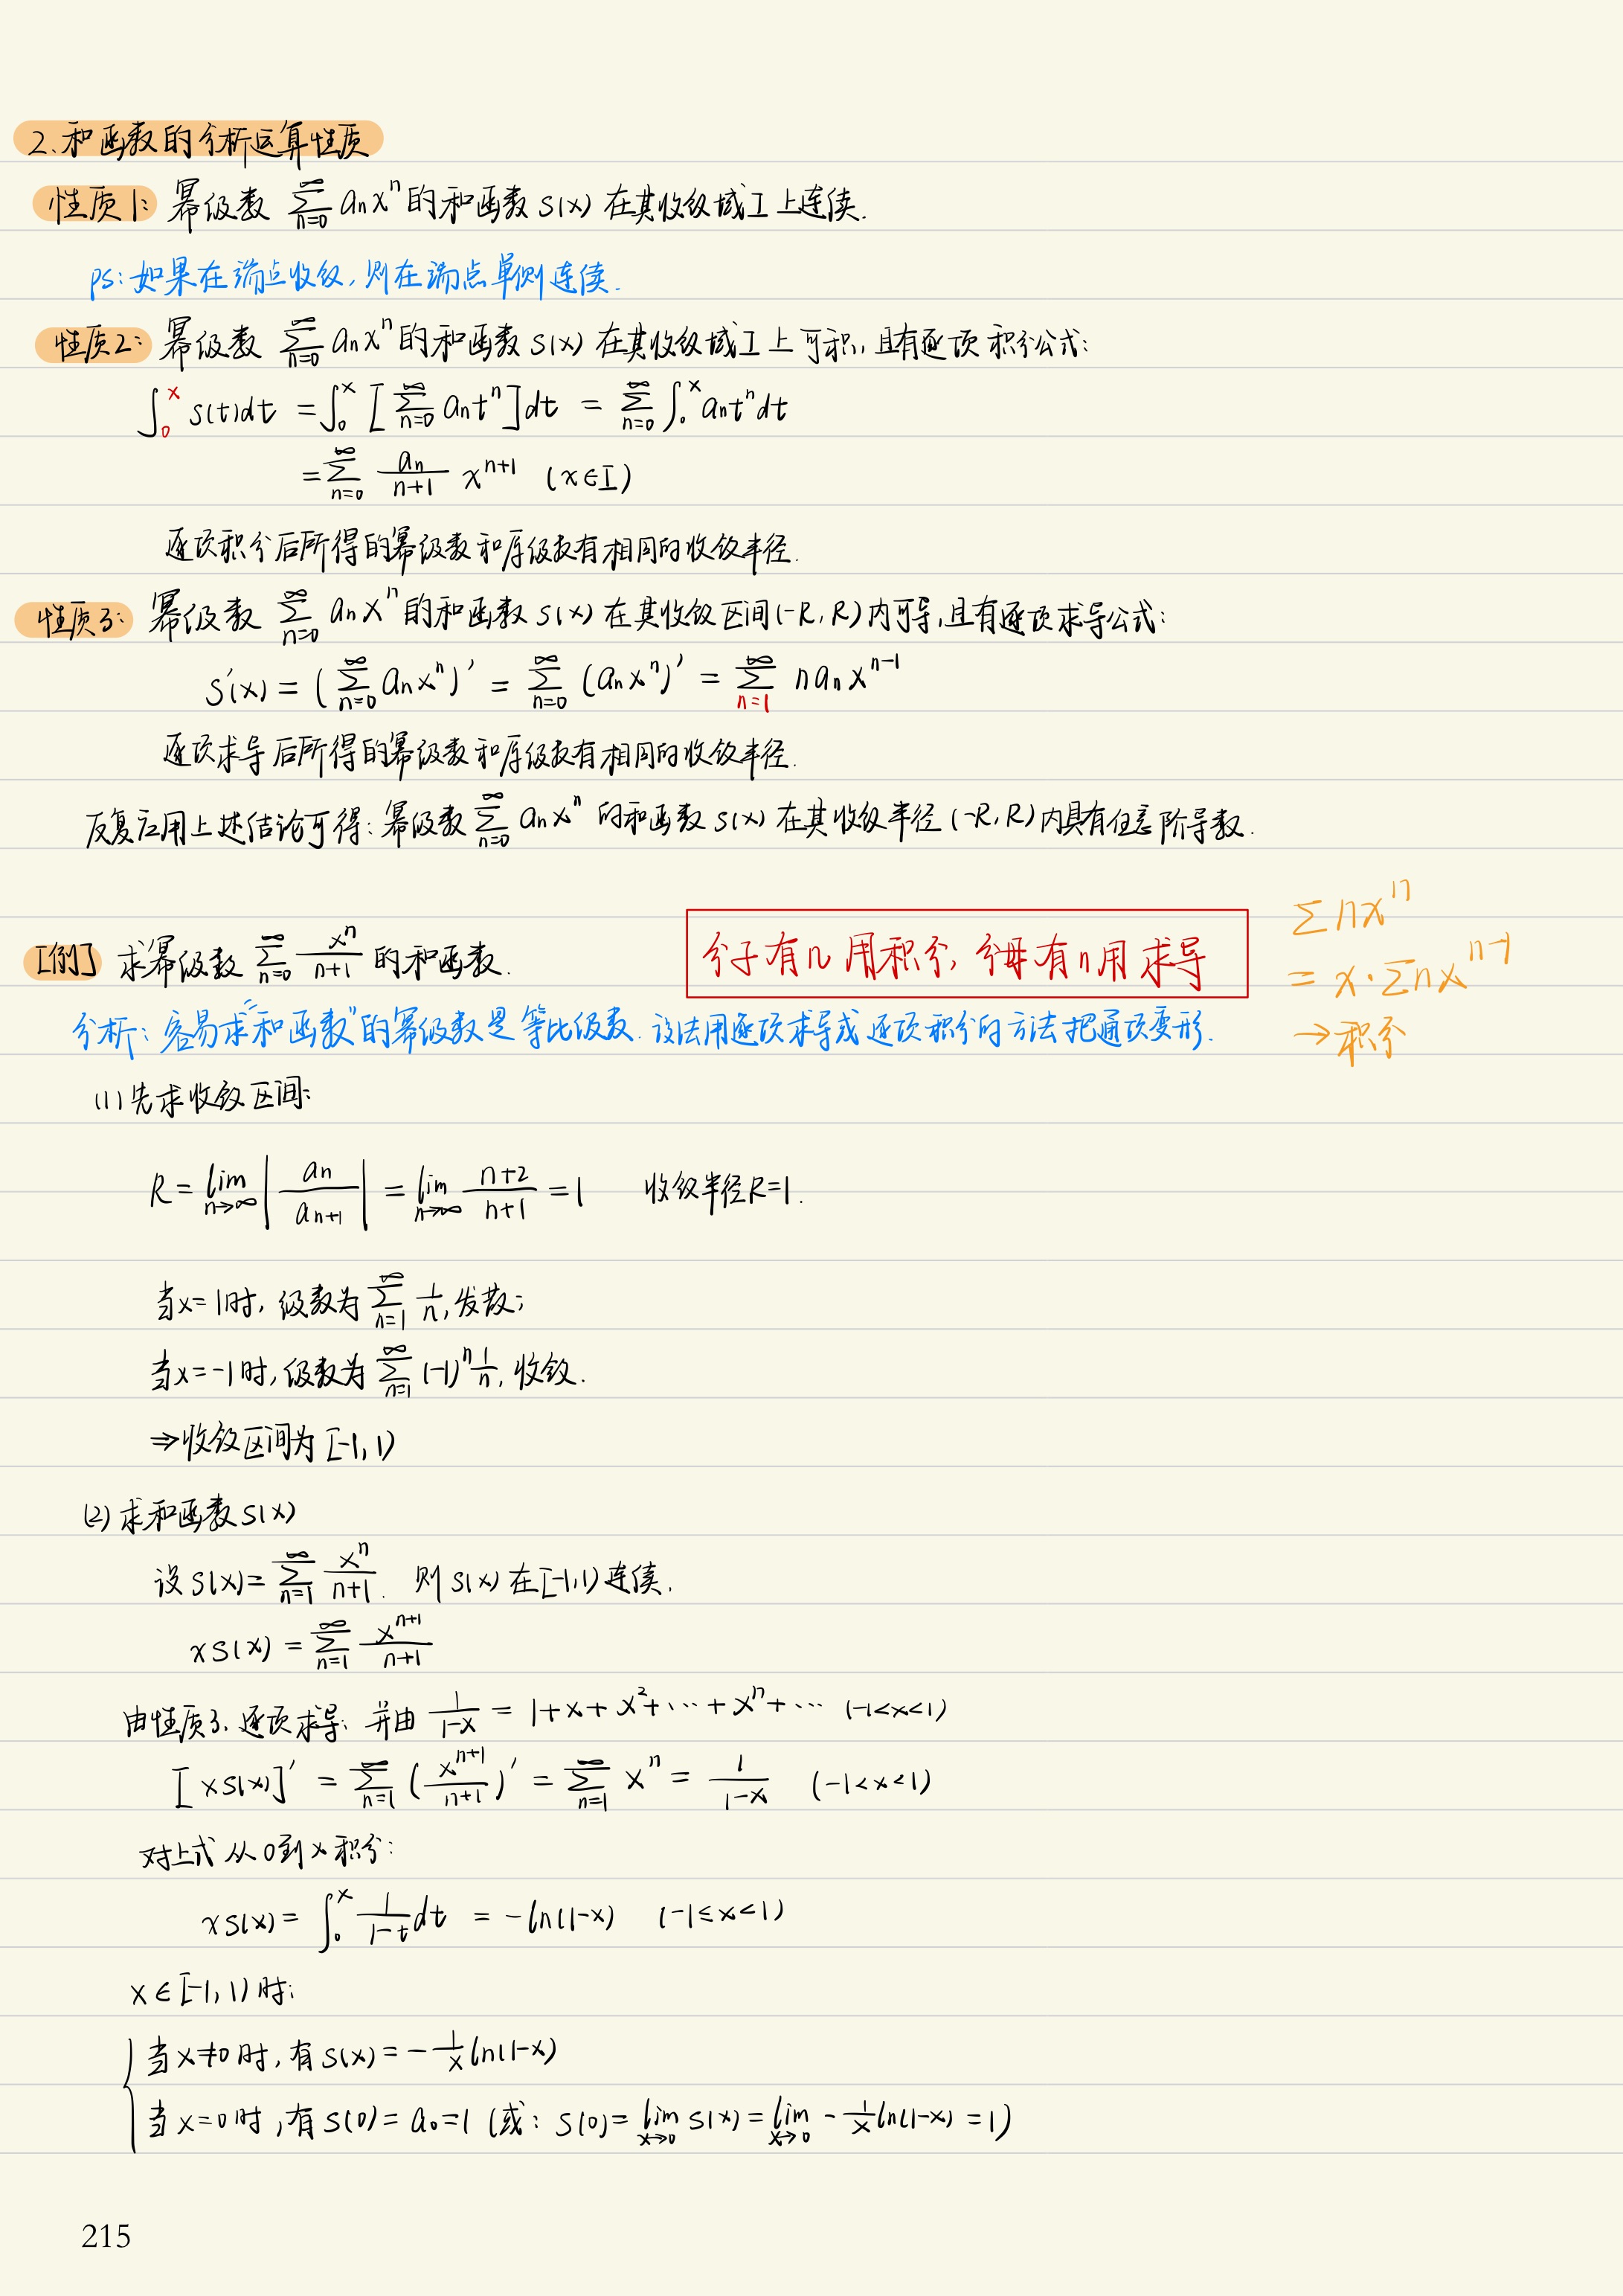 2.和函数的分析运算性质
性质1: 幂级数 ∑_{n=0}^{∞} aₙxⁿ 的和函数 s(x) 在其收敛域I上连续.
ps:如果在端点收敛,则在端点单侧连续.
性质2: 幂级数 ∑_{n=0}^{∞} aₙxⁿ 的和函数 s(x) 在其收敛域I上可积,且有逐项积分公式:
∫_0^x s(t)dt = ∫_0^x [∑_{n=0}^{∞} aₙtⁿ]dt = ∑_{n=0}^{∞} ∫_0^x aₙtⁿdt
= ∑_{n=0}^{∞} \frac{aₙ}{n+1} x^{n+1} (x∈I)
逐项积分后所得的幂级数和原级数有相同的收敛半径.
性质3: 幂级数 ∑_{n=0}^{∞} aₙxⁿ 的和函数 s(x) 在其收敛区间(-R,R)内可导,且有逐项求导公式:
s'(x) = (∑_{n=0}^{∞} aₙxⁿ)' = ∑_{n=0}^{∞} (aₙxⁿ)' = ∑_{n=1}^{∞} naₙx^{n-1}
逐项求导后所得的幂级数和原级数有相同的收敛半径.
反复应用上述结论可得:幂级数 ∑_{n=0}^{∞} aₙxⁿ 的和函数 s(x) 在其收敛半径 (-R,R) 内具有任意阶导数.
[例] 求幂级数 ∑_{n=0}^{∞} \frac{xⁿ}{n+1} 的和函数.
分子有n用积分,分母有n用求导
∑nxⁿ
= x·∑nx^{n-1}
→积分
分析:容易求"和函数"的幂级数是等比级数.设法用逐项求导或逐项积分的方法把通项变形.
(1)先求收敛区间:
R = lim_{n→∞} |\frac{aₙ}{a_{n+1}}| = lim_{n→∞} \frac{n+2}{n+1} = 1 收敛半径R=1.
当x=1时,级数为 ∑_{n=1}^{∞} \frac{1}{n},发散;
当x=-1时,级数为 ∑_{n=1}^{∞} (-1)ⁿ\frac{1}{n},收敛.
⇒收敛区间为[-1,1)
(2)求和函数s(x)
设s(x)=∑_{n=1}^{∞} \frac{xⁿ}{n+1}. 则s(x)在[-1,1)连续.
xs(x) = ∑_{n=1}^{∞} \frac{x^{n+1}}{n+1}
由性质3,逐项求导;并由 \frac{1}{1-x} = 1+x+x²+⋯+xⁿ+⋯ (-1<x<1)
[xs(x)]' = ∑_{n=1}^{∞} (\frac{x^{n+1}}{n+1})' = ∑_{n=1}^{∞} xⁿ = \frac{1}{1-x} (-1<x<1)
对上式从0到x积分:
xs(x) = ∫_0^x \frac{1}{1-t}dt = -ln(1-x) (-1≤x<1)
x∈[-1,1)时:
当x≠0时,有s(x)=-\frac{1}{x}ln(1-x)
当x=0时,有s(0)=a₀=1 (或:s(0)=lim_{x→0} s(x)=lim_{x→0} -\frac{1}{x}ln(1-x)=1)
215